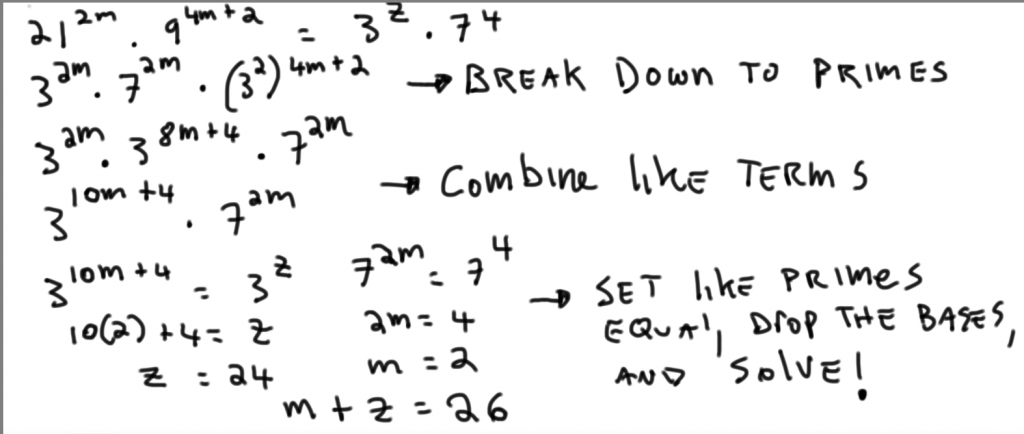 21^2m · 9^4m+2 = 3^z · 7^4
3^2m · 7^2m · (3^2)^4m+2 → BREAK DOWN TO PRIMES
3^2m · 3^8m+4 · 7^2m
3^10m+4 · 7^2m → Combine like TERMS
3^10m+4 = 3^z 7^2m = 7^4 → SET like PRIMES
10(2)+4 = z 2m = 4 EQUAl, DROP THE BASES,
z = 24 m = 2 AND SOLVE!
m + z = 26